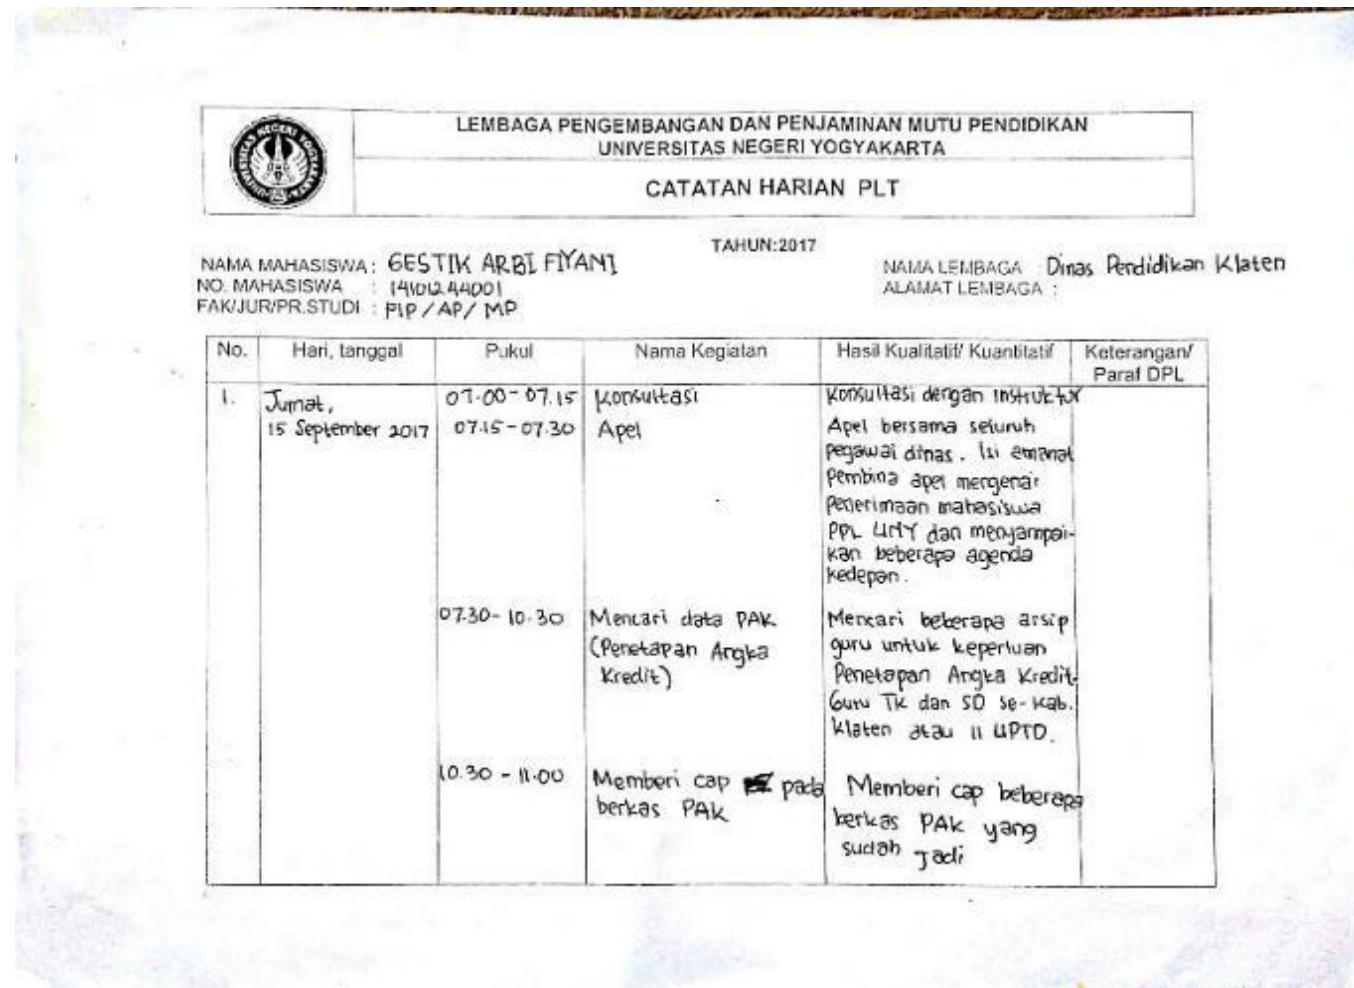 LEMBAGA PENGEMBANGAN DAN PENJAMINAN MUTU PENDIDIKAN
UNIVERSITAS NEGERI YOGYAKARTA
CATATAN HARIAN PLT
TAHUN:2017
NAMA MAHASISWA : GESTIK ARBI FIYANI
NO. MAHASISWA : 14101244001
FAK/JUR/PR.STUDI : FIP / AP / MP
NAMA LEMBAGA : Dinas Pendidikan Klaten
ALAMAT LEMBAGA :
No. Hari, tanggal Pukul Nama Kegiatan Hasil Kualitatif/ Kuantitatif Keterangan/
Paraf DPL
1. Jumat,
15 September 2017
07.00 - 07.15 Konsultasi
Konsultasi dengan Instruktur
07.15 - 07.30 Apel
Apel bersama seluruh
pegawai dinas. Isi amanat
Pembina apel mengenai
Penerimaan mahasiswa
PPL UNY dan menyampai-
kan beberapa agenda
kedepan.
07.30 - 10.30 Mencari data PAK
(Penetapan Angka
Kredit)
Mencari beberapa arsip
guru untuk keperluan
Penetapan Angka Kredit
Guru TK dan SD se-Kab.
Klaten atau 11 UPTD.
10.30 - 11.00 Memberi cap pada
berkas PAK
Memberi cap beberapa
berkas PAK yang
sudah jadi